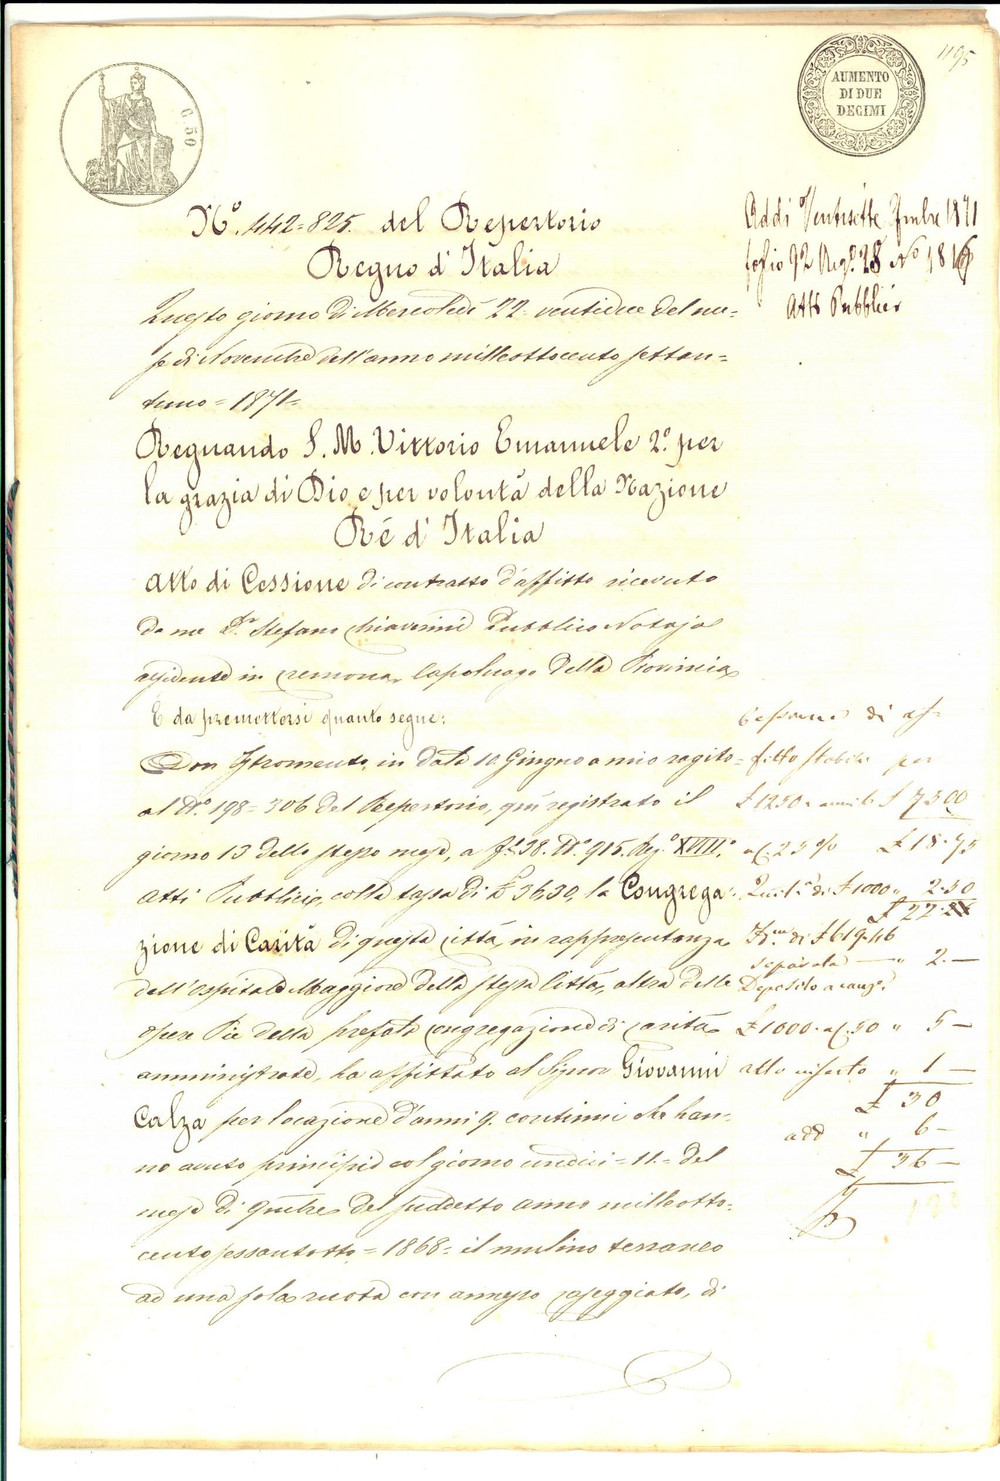 1195
C. 50
AUMENTO
DI DUE
DECIMI
N.° 442=825. del Repertorio
Regno d'Italia
Addi Ventisette 9mbre 1871
foglio 92 Reg.° 28 N° 1816
Atti Pubblici
Questo giorno di Mercoledì 22 ventidue del me=
se di Novembre dell'anno milleottocento settan=
tuno = 1871=
Regnando S. M. Vittorio Emanuele 2.° per
la grazia di Dio e per volontà della Nazione
Ré d'Italia
Atto di Cessione di contratto d'affitto ricevuto
da me D.r Stefano Chiaverini Pubblico Notajo
residente in Cremona, Capoluogo della Provincia
E da premettersi quanto segue:
Con Istromento, in data 10 Giugno a mio rogito=
al N.° 198=306 del Repertorio, qui registrato il
giorno 13 dello stesso mese, a f.° 38. N.° 915. Reg.° XVIII.°
Atti Pubblici, colla tassa di £ 36,30, la Congrega=
zione di Carità di questa città, in rappresentanza
dell'Ospitale Maggiore della stessa Città, altra delle
Opere Pie della prefata Congregazione di Carità
amministrate, ha affittato al Signor Giovanni
Calza per locazione d'anni 9. continui che han=
no avuto principio col giorno undici = 11.= del
mese di 9mbre del suddetto anno milleotto=
centosessantotto = 1868= il mulino terraneo
ad una sola ruota con annesso caseggiato, di
Cessione di af=
fitto stabile per
£ 1250 annue £ 7500
a C. 25 % £ 18.75
Quit.a di £ 1000 " 2.50
£ 22.
di £ 619.46
separata — " 2.—
Deposito a cauz.e
£ 1000. a C. 50 " 5—
atto inserto " 1—
£ 30
add " 6—
£ 36—